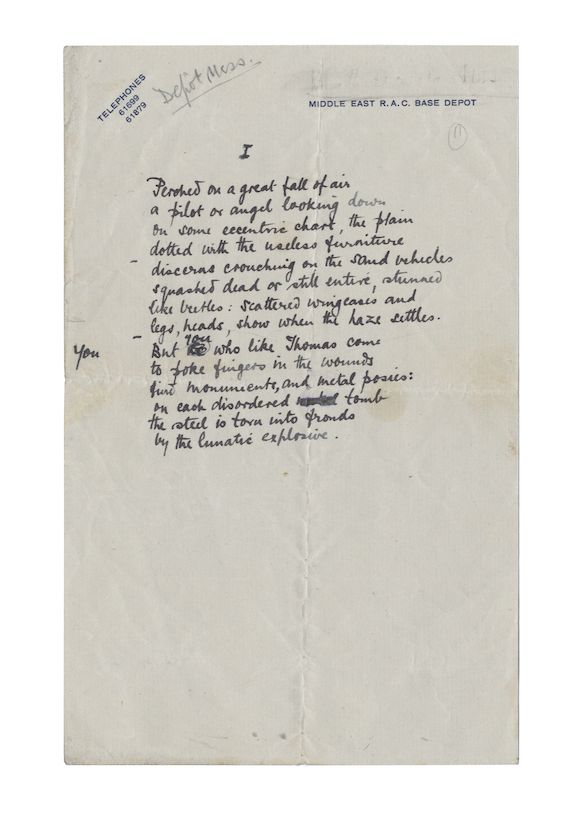 TELEPHONES
61699
61879
Depot Mess.
MIDDLE EAST R.A.C. BASE DEPOT
11
I
Perched on a great fall of air
a pilot or angel looking down
on some eccentric chart, the plain
dotted with the useless furniture
- disceras crouching on the sand vehicles
squashed dead or still entire, stunned
like beetles: scattered wingcases and
legs, heads, show when the haze settles.
you - But you who like Thomas come
to poke fingers in the wounds
find monuments, and metal posies:
on each disordered tomb
the steel is torn into fronds
by the lunatic explosive.